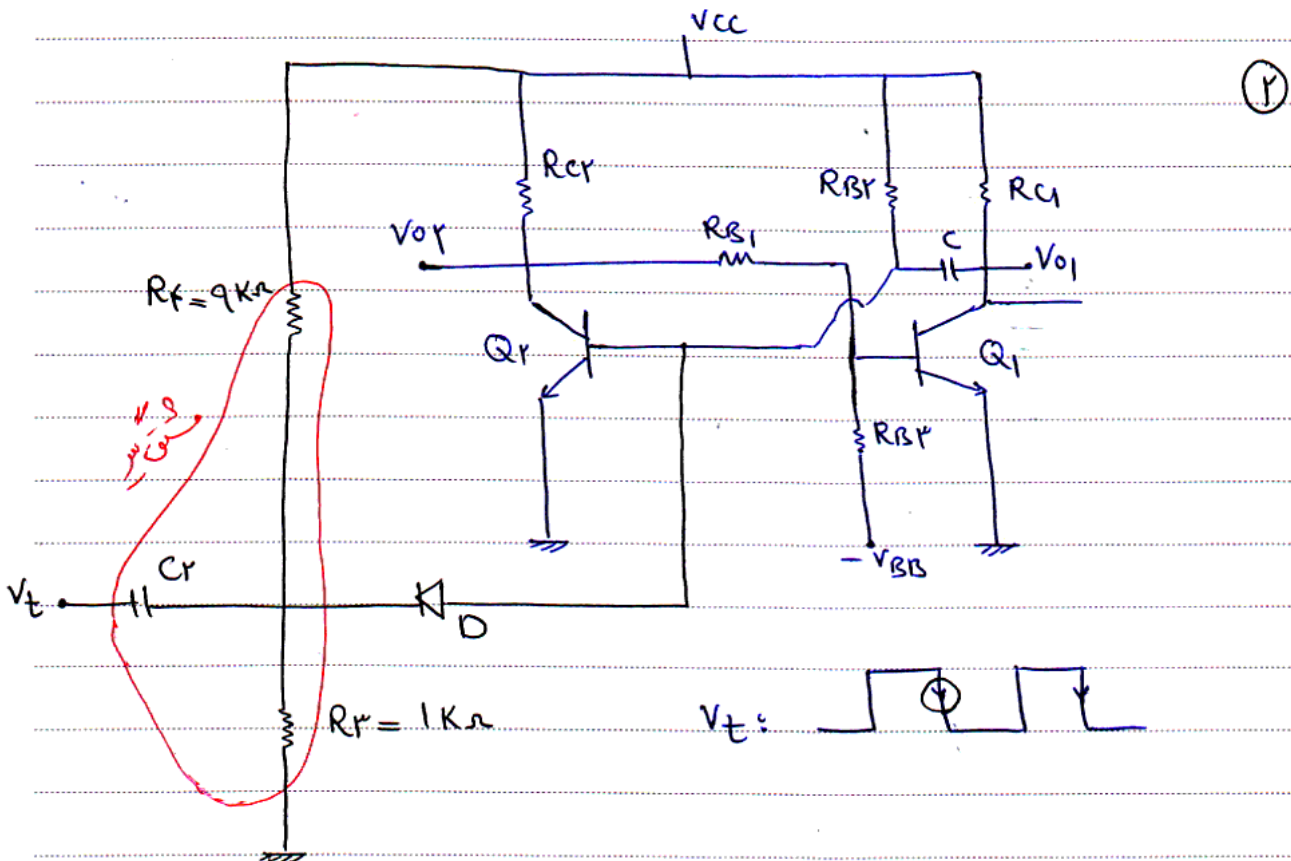 VCC
۲
RC۲
RB۲
RC۱
VO۲
RB۱
C
VO۱
R۴ = ۹KΩ
Q۲
Q۱
RB۳
- VBB
C۲
Vt
D
R۳ = ۱KΩ
Vt :